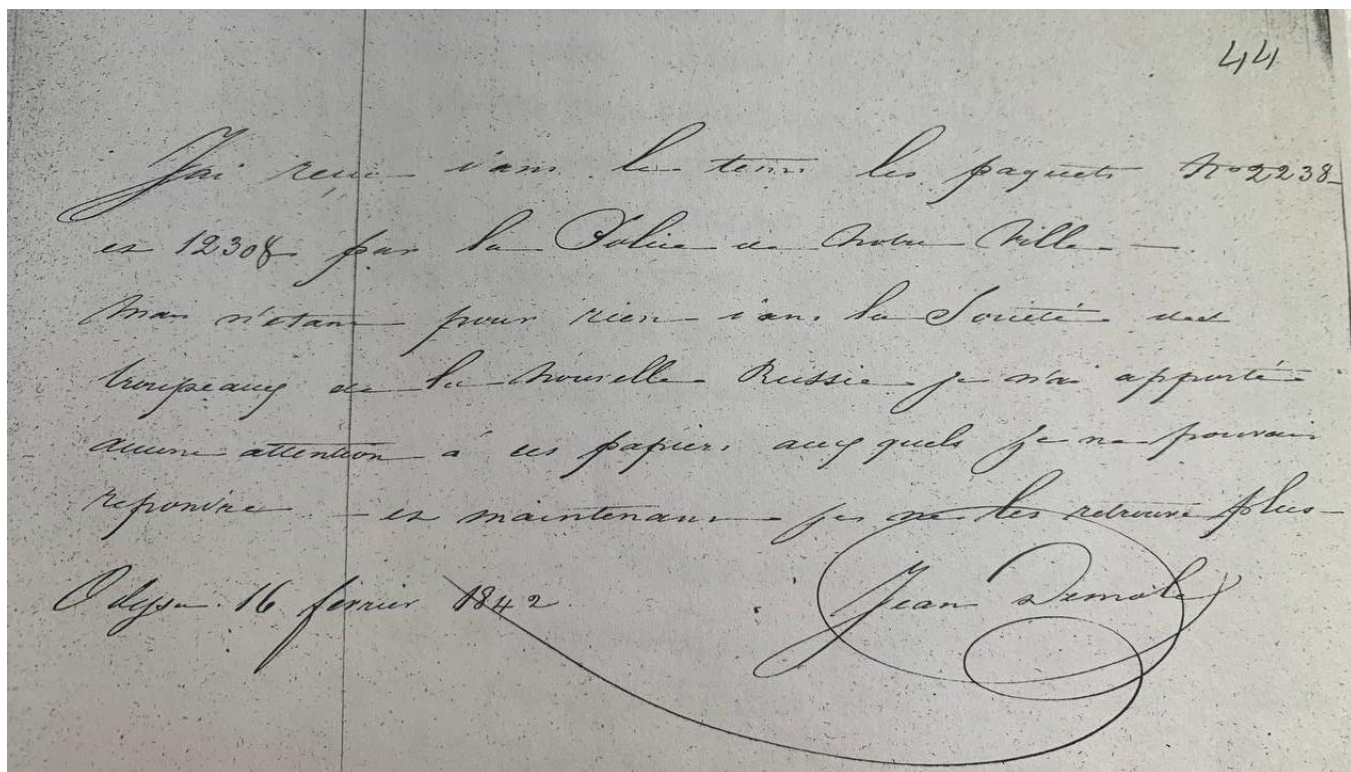 44
J'ai reçu dans le tems les paquets No 2238
et 12308 par la Police de Notre Ville
Mais n'étant pour rien dans la Société des
troupeaux de la Nouvelle Russie je n'ai apporté
aucune attention à ces papiers aux quels je ne pouvais
repondre — et maintenant je ne les retrouve plus
Odessa 16 fevrier 1842
Jean Demole